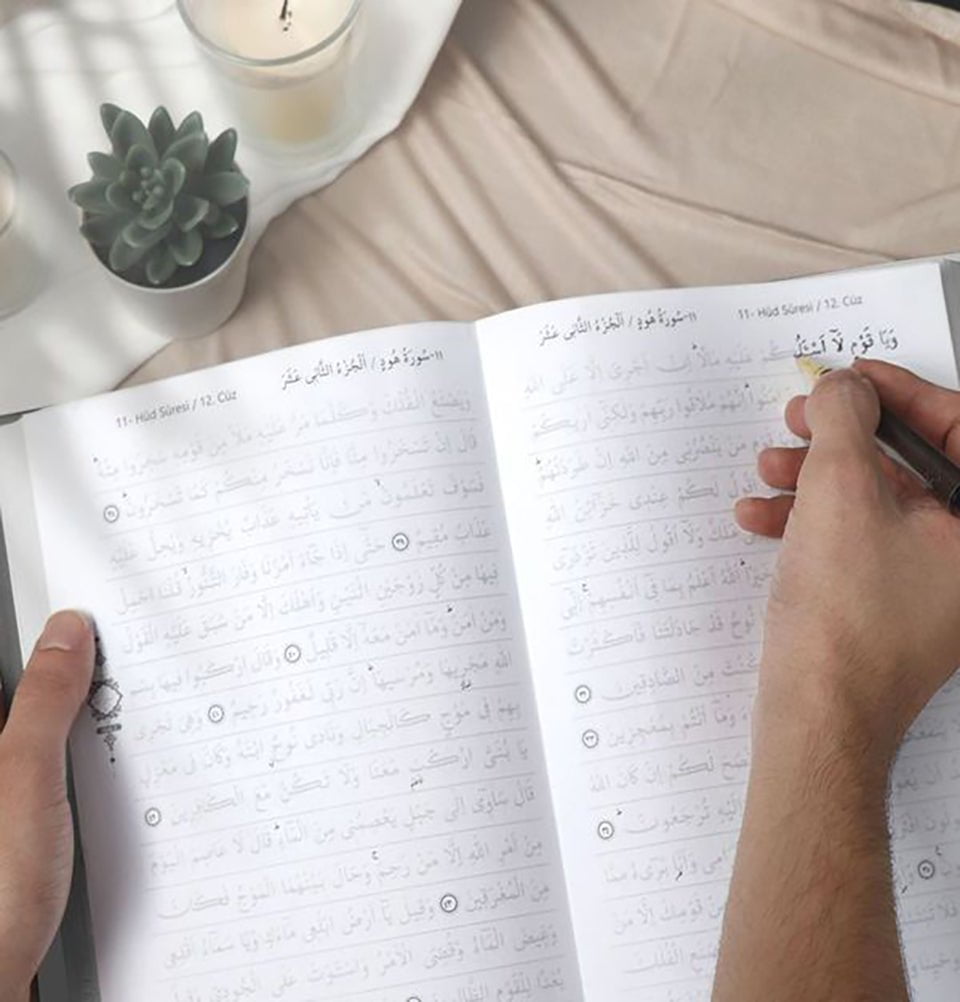 11- Hûd Sûresi / 12. Cüz
١١-سُورَةُ هُودٍ / اَلْجُزْءُ الثَّانِى عَشَرَ
وَيَا قَوْمِ لَٓا اَسْـَٔلُكُمْ عَلَيْهِ مَالًاۜ اِنْ اَجْرِىَ اِلَّا عَلَى اللّٰهِ
اٰمَنُواۜ اِنَّهُمْ مُلَاقُوا رَبِّهِمْ وَلٰكِنّٖى اَرٰيكُمْ
قَوْمِ مَنْ يَنْصُرُنٖى مِنَ اللّٰهِ اِنْ طَرَدْتُهُمْۜ
اَقُولُ لَكُمْ عِنْدٖى خَزَٓائِنُ اللّٰهِ
مَلَكٌ وَلَٓا اَقُولُ لِلَّذٖينَ تَزْدَرٖٓى
خَيْرًاۜ اَللّٰهُ اَعْلَمُ بِمَا فٖٓى اَنْفُسِهِمْۚ اِنّٖٓى
نُوحُ قَدْ جَادَلْتَنَا فَاَكْثَرْتَ
كُنْتَ مِنَ الصَّادِقٖينَ ٣٢
وَمَٓا اَنْتُمْ بِمُعْجِزٖينَ ٣٣
لَكُمْ اِنْ كَانَ اللّٰهُ
تُرْجَعُونَۜ ٣٤
وَاَنَا۬ بَرٖٓىءٌ مِمَّا
قَوْمِكَ اِلَّا مَنْ
الْفُلْكَ
١١-سُورَةُ هُودٍ / اَلْجُزْءُ الثَّانِى عَشَرَ
11- Hûd Sûresi / 12. Cüz
وَيَصْنَعُ الْفُلْكَ وَكُلَّمَا مَرَّ عَلَيْهِ مَلَاٌ مِنْ قَوْمِهٖ سَخِرُوا مِنْهُۜ
قَالَ اِنْ تَسْخَرُوا مِنَّا فَاِنَّا نَسْخَرُ مِنْكُمْ كَمَا تَسْخَرُونَۜ ٣٨
فَسَوْفَ تَعْلَمُونَۙ مَنْ يَأْتٖيهِ عَذَابٌ يُخْزٖيهِ وَيَحِلُّ عَلَيْهِ
عَذَابٌ مُقٖيمٌ ٣٩ حَتّٰٓى اِذَا جَٓاءَ اَمْرُنَا وَفَارَ التَّنُّورُۙ قُلْنَا احْمِلْ
فٖيهَا مِنْ كُلٍّ زَوْجَيْنِ اثْنَيْنِ وَاَهْلَكَ اِلَّا مَنْ سَبَقَ عَلَيْهِ الْقَوْلُ
وَمَنْ اٰمَنَۜ وَمَٓا اٰمَنَ مَعَهُٓ اِلَّا قَلٖيلٌ ٤٠ وَقَالَ ارْكَبُوا فٖيهَا بِسْمِ
اللّٰهِ مَجْرٰۭيهَا وَمُرْسٰيهَاۜ اِنَّ رَبّٖى لَغَفُورٌ رَحٖيمٌ ٤١ وَهِىَ تَجْرٖى
بِهِمْ فٖى مَوْجٍ كَالْجِبَالِ وَنَادٰى نُوحٌۨ ابْنَهُ وَكَانَ فٖى مَعْزِلٍ
يَا بُنَىَّ ارْكَبْ مَعَنَا وَلَا تَكُنْ مَعَ الْكَافِرٖينَ ٤٢
قَالَ سَاٰوٖٓى اِلٰى جَبَلٍ يَعْصِمُنٖى مِنَ الْمَٓاءِۜ قَالَ لَا عَاصِمَ الْيَوْمَ
مِنْ اَمْرِ اللّٰهِ اِلَّا مَنْ رَحِمَۚ وَحَالَ بَيْنَهُمَا الْمَوْجُ فَكَانَ
مِنَ الْمُغْرَقٖينَ ٤٣ وَقٖيلَ يَٓا اَرْضُ ابْلَعٖى مَٓاءَكِ وَيَا سَمَٓاءُ اَقْلِعٖى
وَغٖيضَ الْمَٓاءُ وَقُضِىَ الْاَمْرُ وَاسْتَوَتْ عَلَى الْجُودِىِّ وَقٖيلَ
بُعْدًا لِلْقَوْمِ الظَّالِمٖينَ